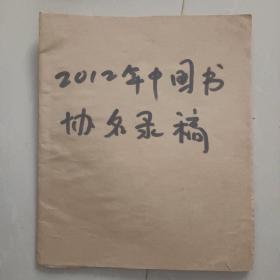 2012年中国书
协名录稿